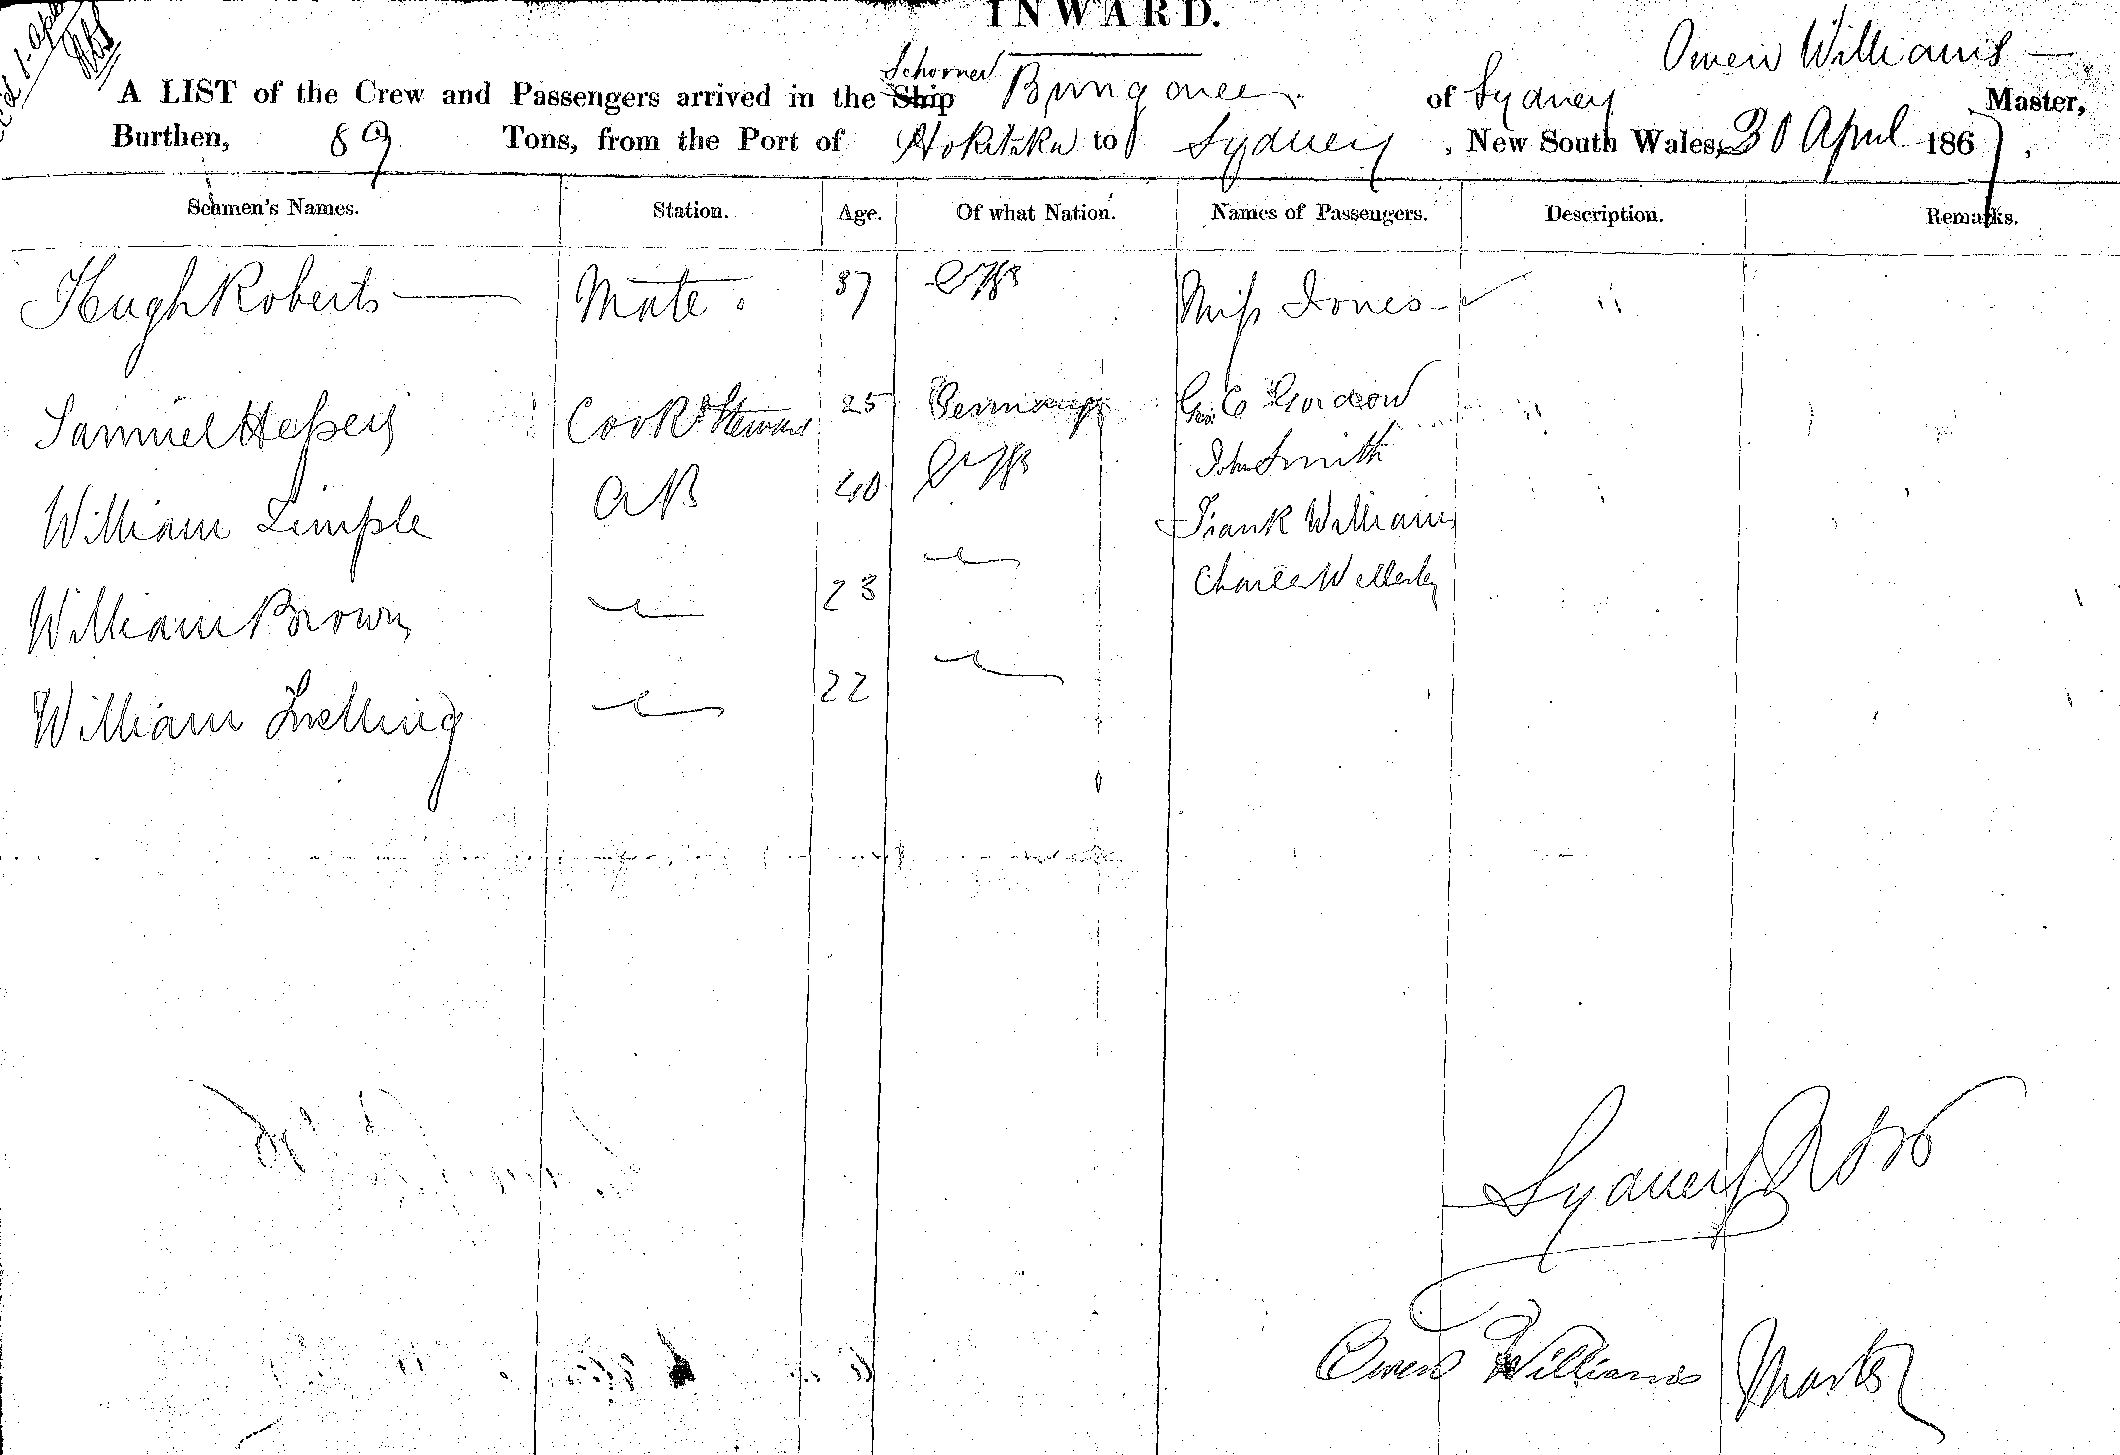 INWARD.
Owen Williams
Schooner
A LIST of the Crew and Passengers arrived in the Ship Bungaree of Sydney Master,
Burthen, 89 Tons, from the Port of Hokitika to Sydney, New South Wales, 30 April 1867.
Seamen's Names. Station. Age. Of what Nation. Names of Passengers. Description. Remarks.
Hugh Roberts Mate 37 Miss Jones
Samuel Cook & Steward 25 Germany Geo. C Gordon
John Smith
William AB 40 Frank Williams
William Brown 23 Charles
William 22
Sydney
Owen Williams Master